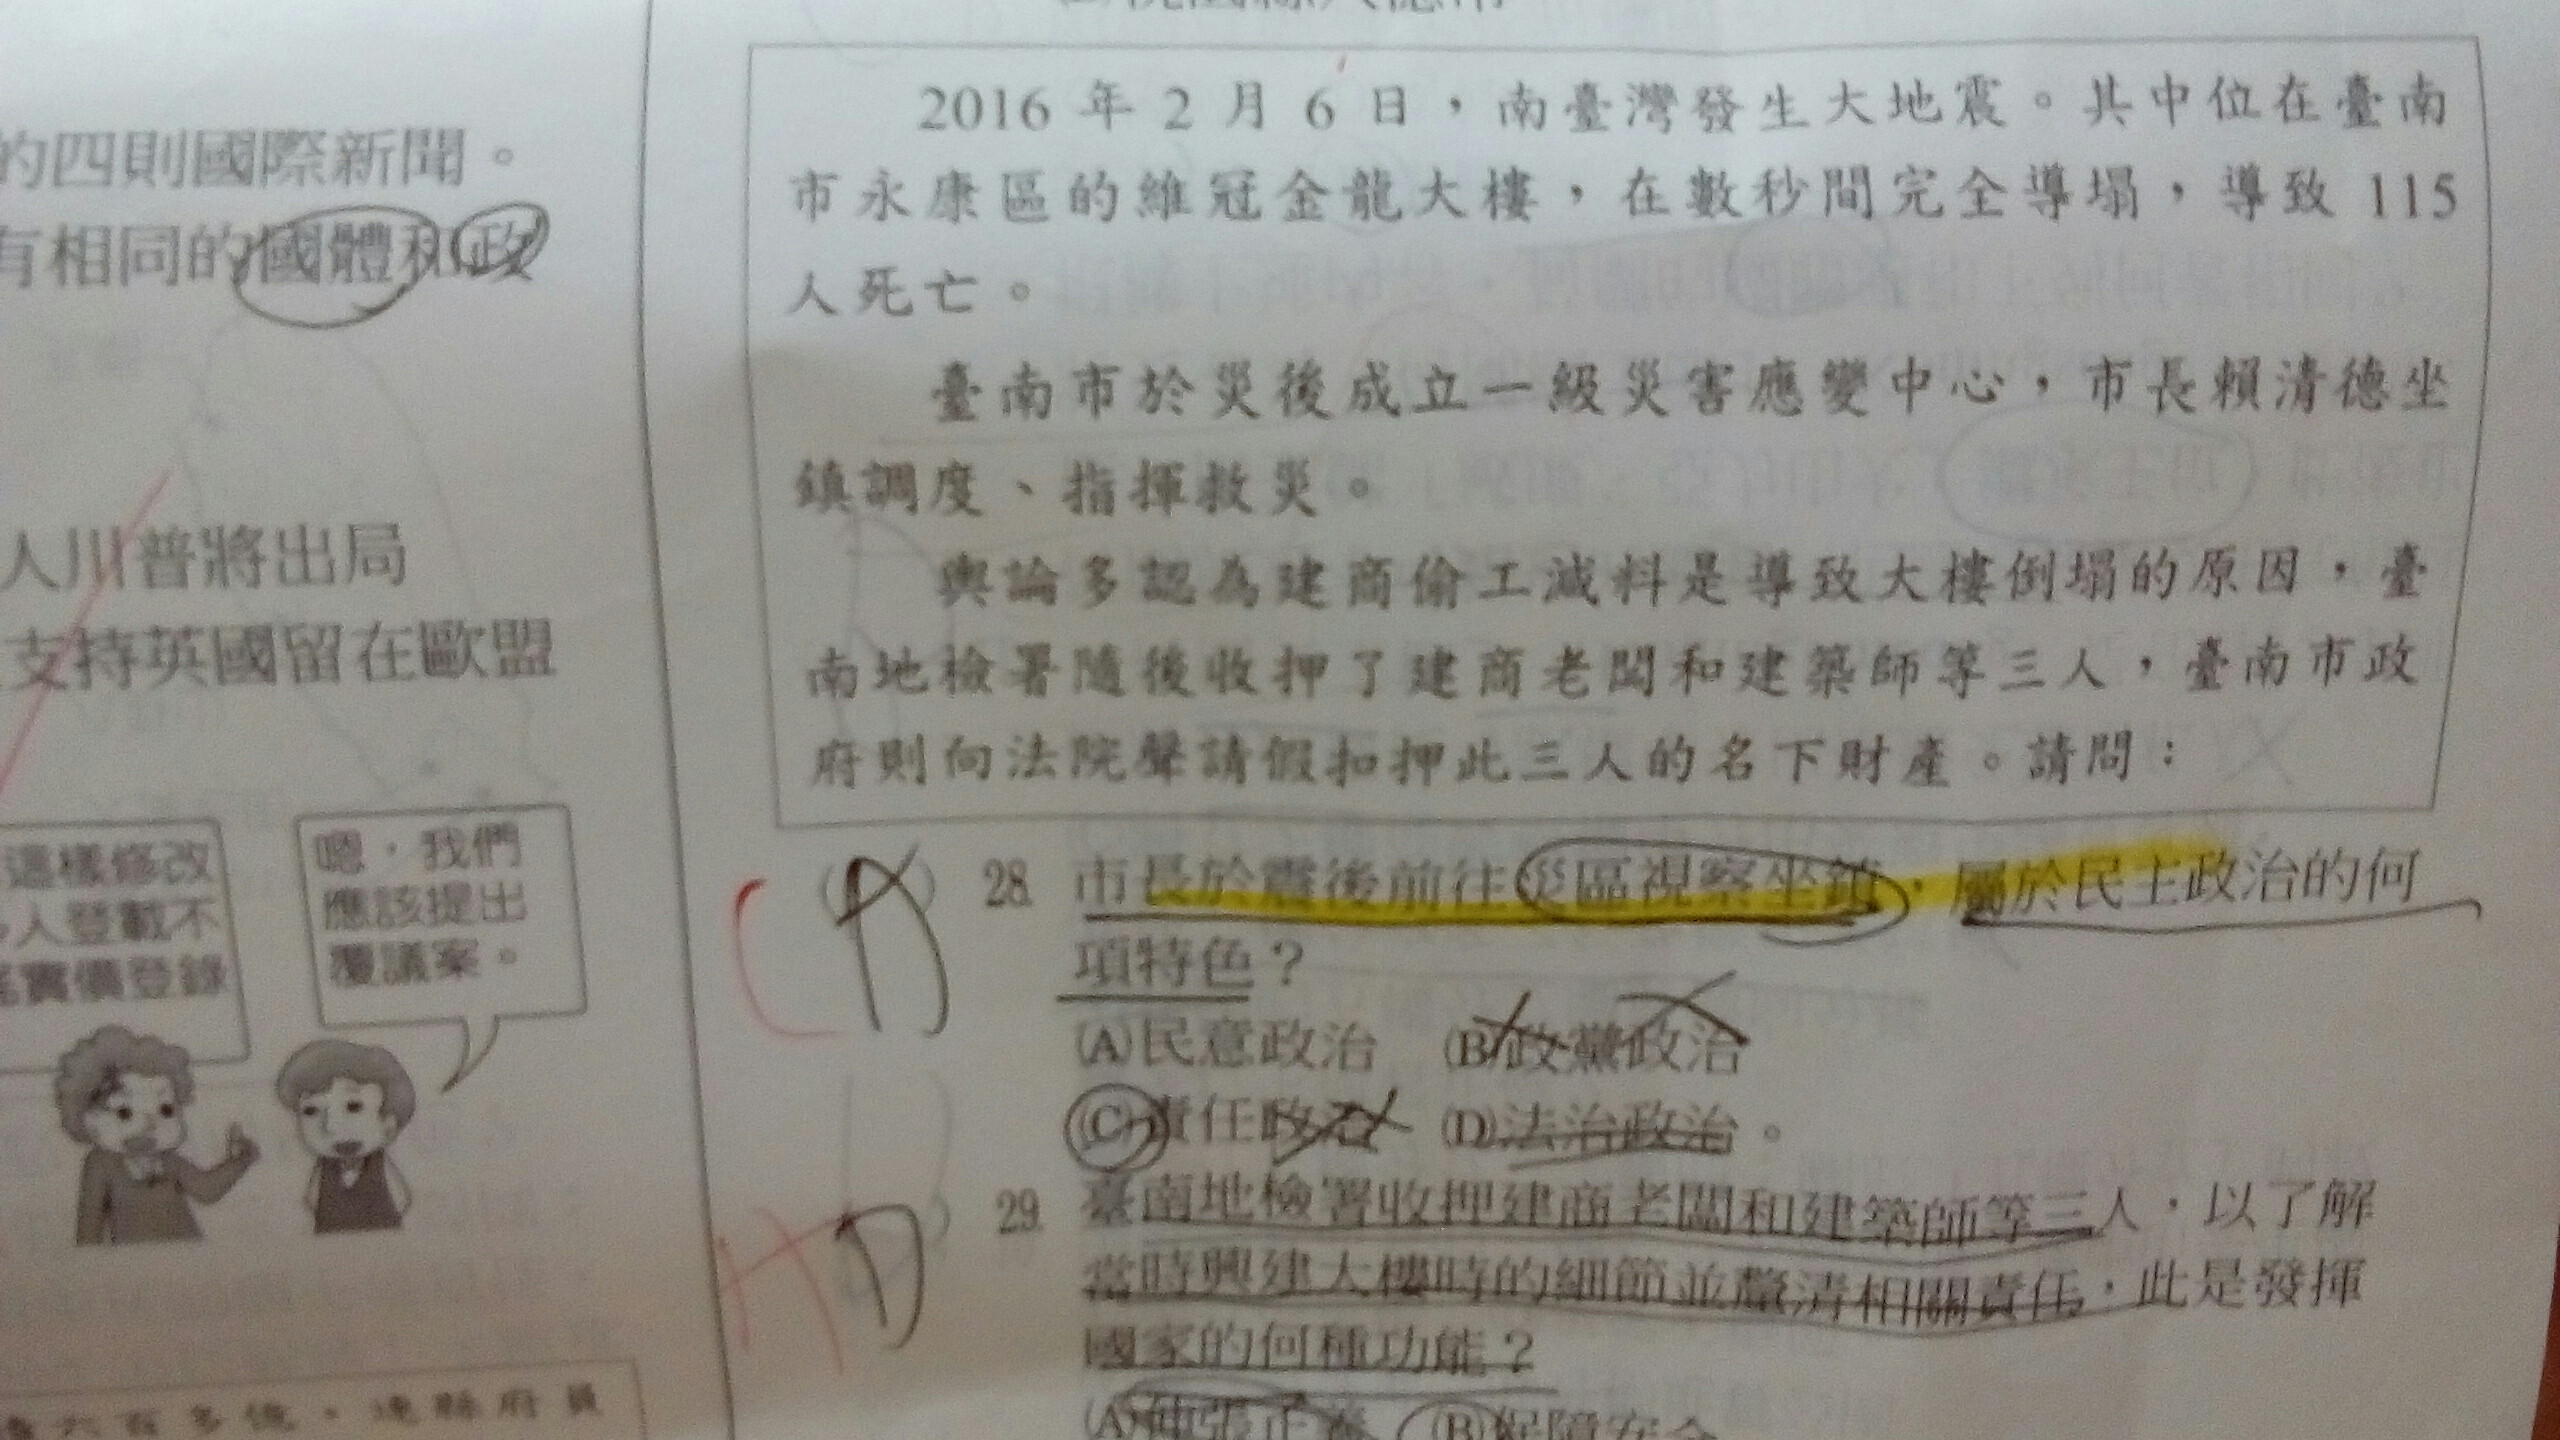 的四則國際新聞。
有相同的國體和政
人川普將出局
支持英國留在歐盟
這樣修改
人登載不
實價登錄
嗯,我們
應該提出
覆議案。
六百多億,連縣府員
2016 年 2 月 6 日,南臺灣發生大地震。共中位在臺南
市永康區的維冠金龍大樓,在數秒間完全導塌,導致 115
人死亡。
臺南市於災後成立一級災害應變中心,市長賴清德坐
鎮調度、指揮救災。
輿論多認為建商偷工減料是導致大樓倒塌的原因,臺
南地檢署隨後收押了建商老闆和建築師等三人,臺南市政
府則向法院聲請假扣押此三人的名下財產。請問:
( A ) 28. 市長於震後前往災區視察坐鎮,屬於民主政治的何
項特色?
(A)民意政治 (B)政黨政治
(C)責任政治 (D)法治政治。
( D ) 29. 臺南地檢署收押建商老闆和建築師等三人,以了解
當時興建大樓時的細節並釐清相關責任,此是發揮
國家的何種功能?
(A)伸張正義 (B)保障安全